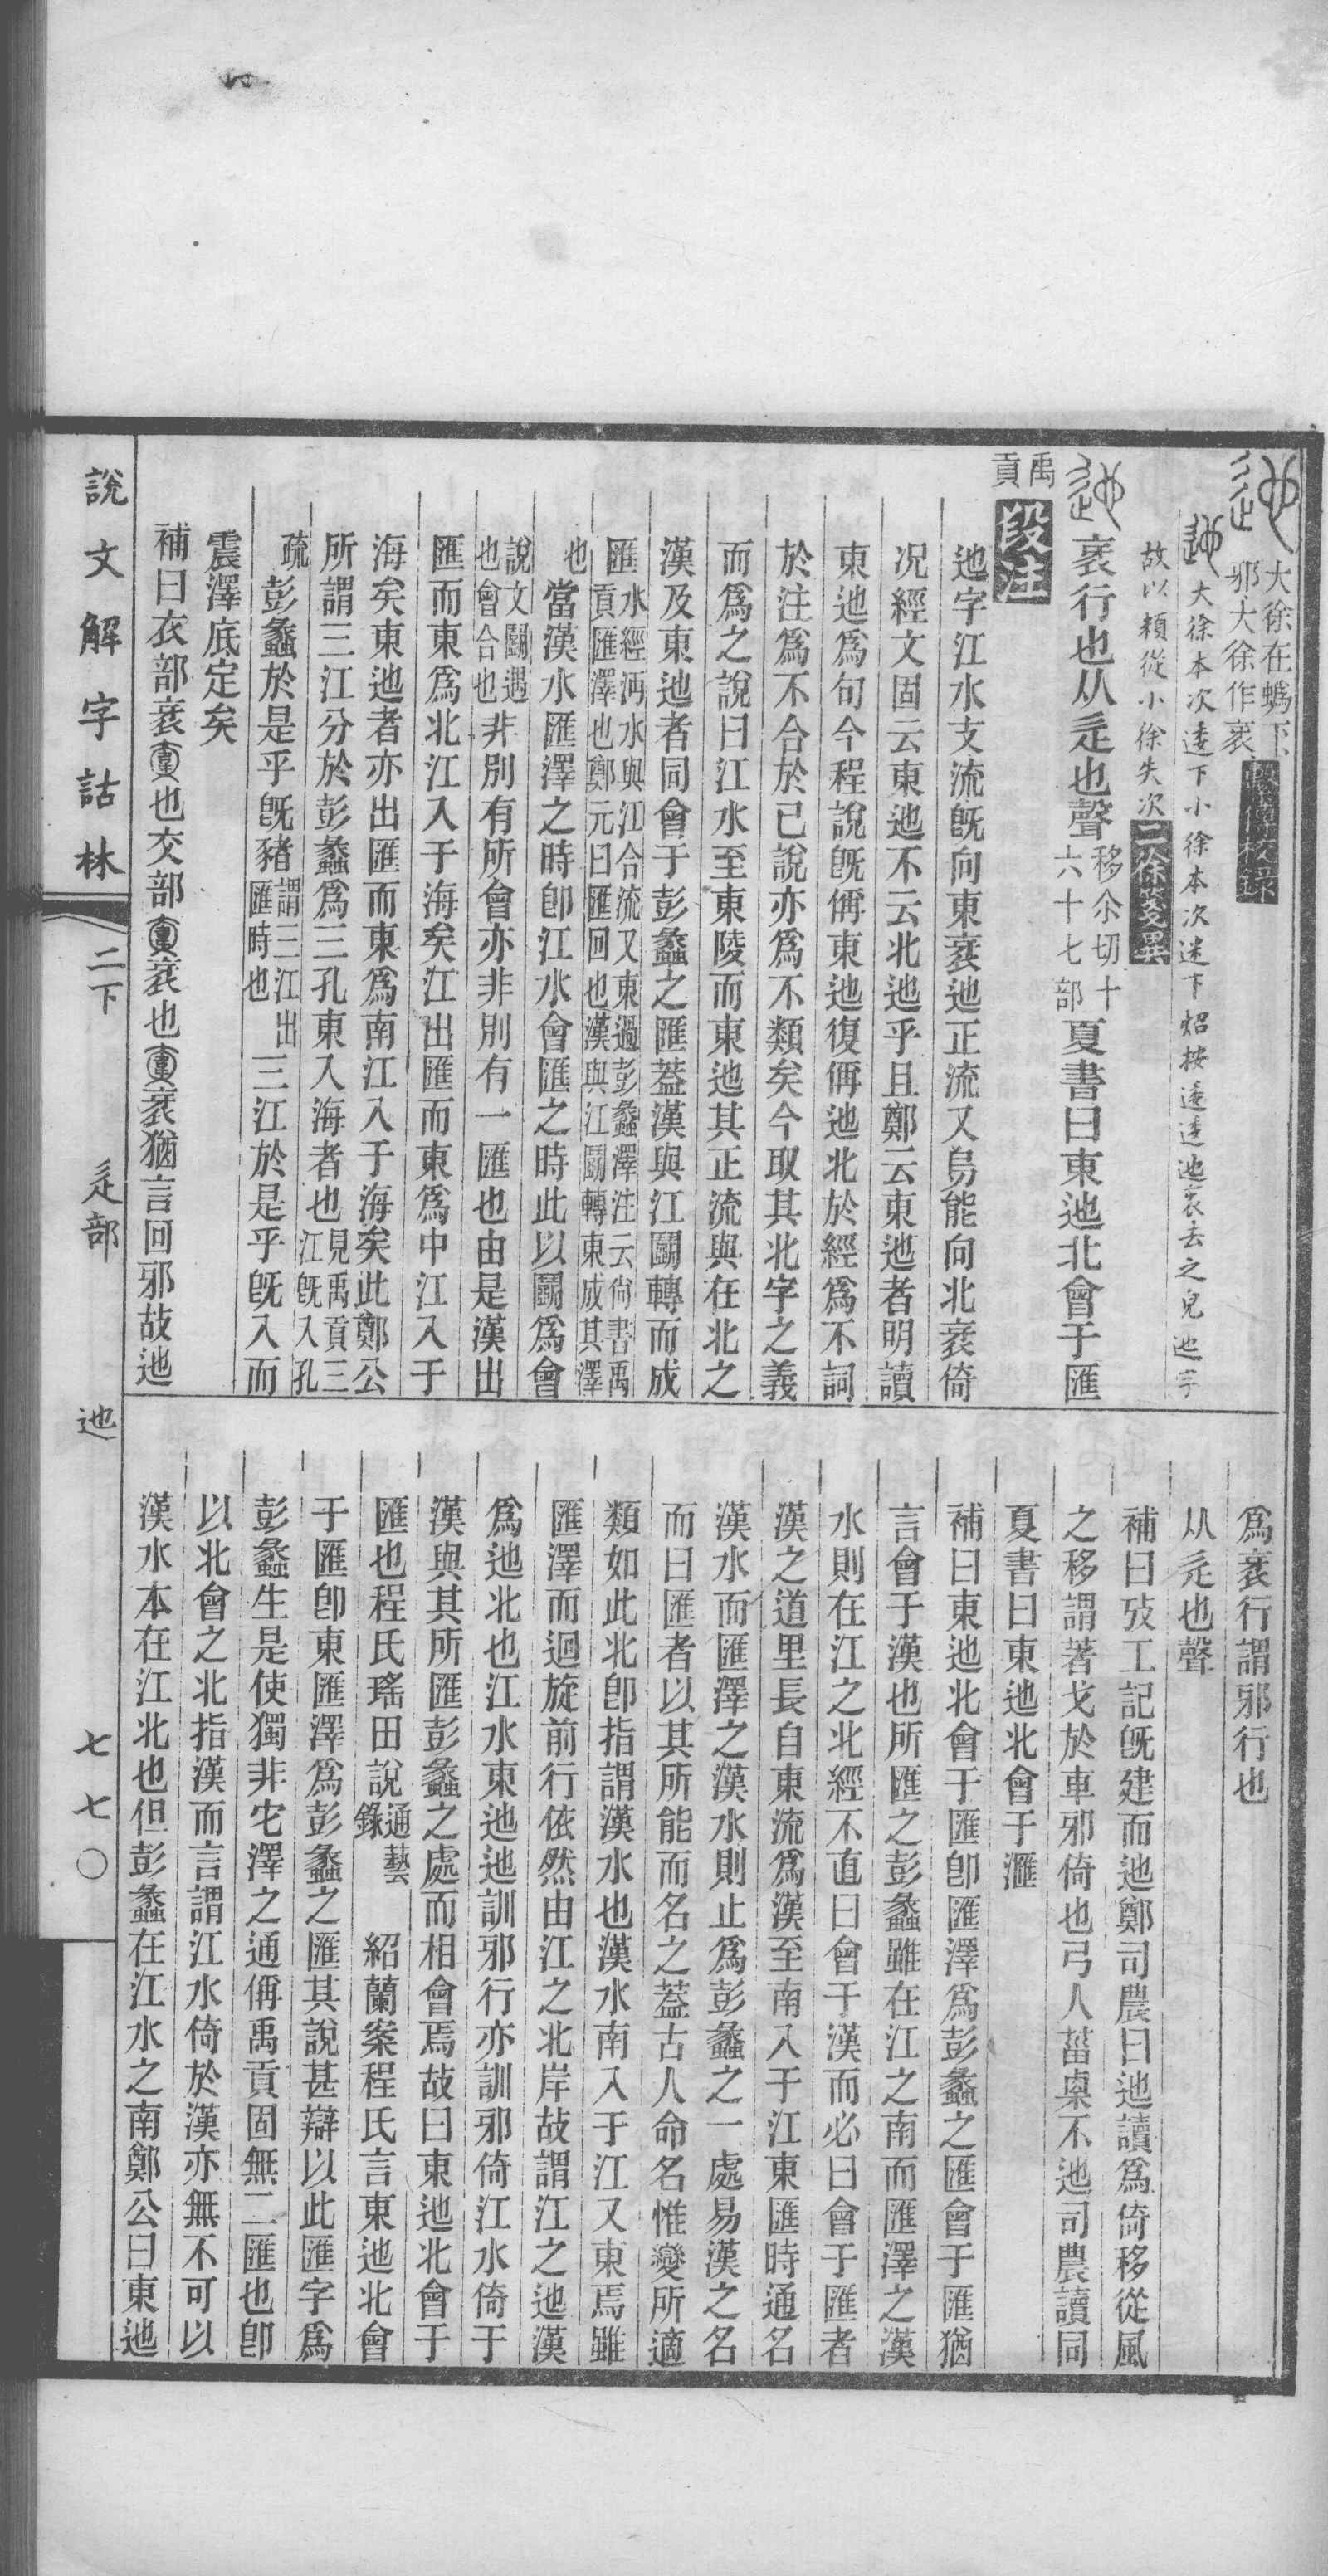 大徐在䗪下
邪大徐作衺
繫傳校錄
大徐本次逶下小徐本次迷下炤按逶迤迆衺去之皃迆字
故以類從小徐失次
二徐箋異
衺行也从辵也聲移尒切十
六十七部夏書曰東迆北會于匯
禹
貢
段注
迆字江水支流旣向東衺迆正流又烏能向北衺倚
况經文固云東迆不云北迆乎且鄭云東迆者明讀
東迆爲句今程說旣偁東迆復偁迆北於經爲不詞
於注爲不合於己說亦爲不類矣今取其北字之義
而爲之說曰江水至東陵而東迆其正流與在北之
漢及東迆者同會于彭蠡之匯葢漢與江鬭轉而成
匯水經沔水與江合流又東過彭蠡澤注云尙書禹
貢匯澤也鄭元曰匯回也漢與江鬭轉東成其澤
也當漢水匯澤之時卽江水會匯之時此以鬭爲會
說文鬭遇
也會合也非別有所會亦非別有一匯也由是漢出
匯而東爲北江入于海矣江出匯而東爲中江入于
海矣東迆者亦出匯而東爲南江入于海矣此鄭公
所謂三江分於彭蠡爲三孔東入海者也見禹貢三
江旣入孔
疏彭蠡於是乎旣豬謂三江出
匯時也三江於是乎旣入而
震澤底定矣
補曰衣部衺𡚇也交部𡚇衺也𡚇衺猶言回邪故迆
爲衺行謂邪行也
从辵也聲
補曰攷工記旣建而迆鄭司農曰迆讀爲倚移從風
之移謂著戈於車邪倚也弓人菑㮚不迆司農讀同
夏書曰東迆北會于滙
補曰東迆北會于匯卽匯澤爲彭蠡之匯會于匯猶
言會于漢也所匯之彭蠡雖在江之南而匯澤之漢
水則在江之北經不直曰會于漢而必曰會于匯者
漢之道里長自東流爲漢至南入于江東匯時通名
漢水而匯澤之漢水則止爲彭蠡之一處易漢之名
而曰匯者以其所能而名之葢古人命名惟變所適
類如此北卽指謂漢水也漢水南入于江又東焉雖
匯澤而迴旋前行依然由江之北岸故謂江之迆漢
爲迆北也江水東迆迆訓邪行亦訓邪倚江水倚于
漢與其所匯彭蠡之處而相會焉故曰東迆北會于
匯也程氏瑤田說通藝
錄　紹蘭案程氏言東迆北會
于匯卽東匯澤爲彭蠡之匯其說甚辯以此匯字爲
彭蠡生是使獨非它澤之通偁禹貢固無二匯也卽
以北會之北指漢而言謂江水倚於漢亦無不可以
漢水本在江北也但彭蠡在江水之南鄭公曰東迆
說文解字詁林
二下
辵部
迆
七七〇